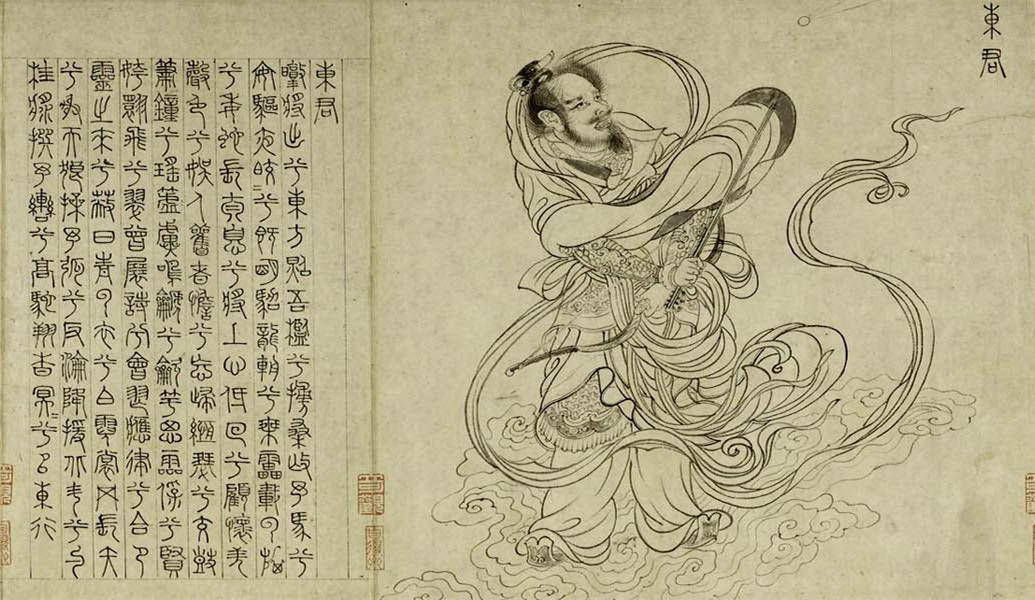 東君
東君
暾將出兮東方照吾檻兮扶桑撫予馬兮
安驅夜皎〻兮既明駕龍輈兮乘靁載雲旗
兮委蛇長太息兮將上心低佪兮顧懷羌
聲色兮娛人觀者憺兮忘歸緪瑟兮交鼓
簫鐘兮瑤簴鳴篪兮龡竽思靈保兮賢
姱翾飛兮翠曾展詩兮會舞應律兮合節
靈之來兮蔽日青雲衣兮白霓裳舉長矢
兮射天狼操予弧兮反淪降援北斗兮酌
桂漿撰予轡兮高馳翔杳冥〻兮以東行